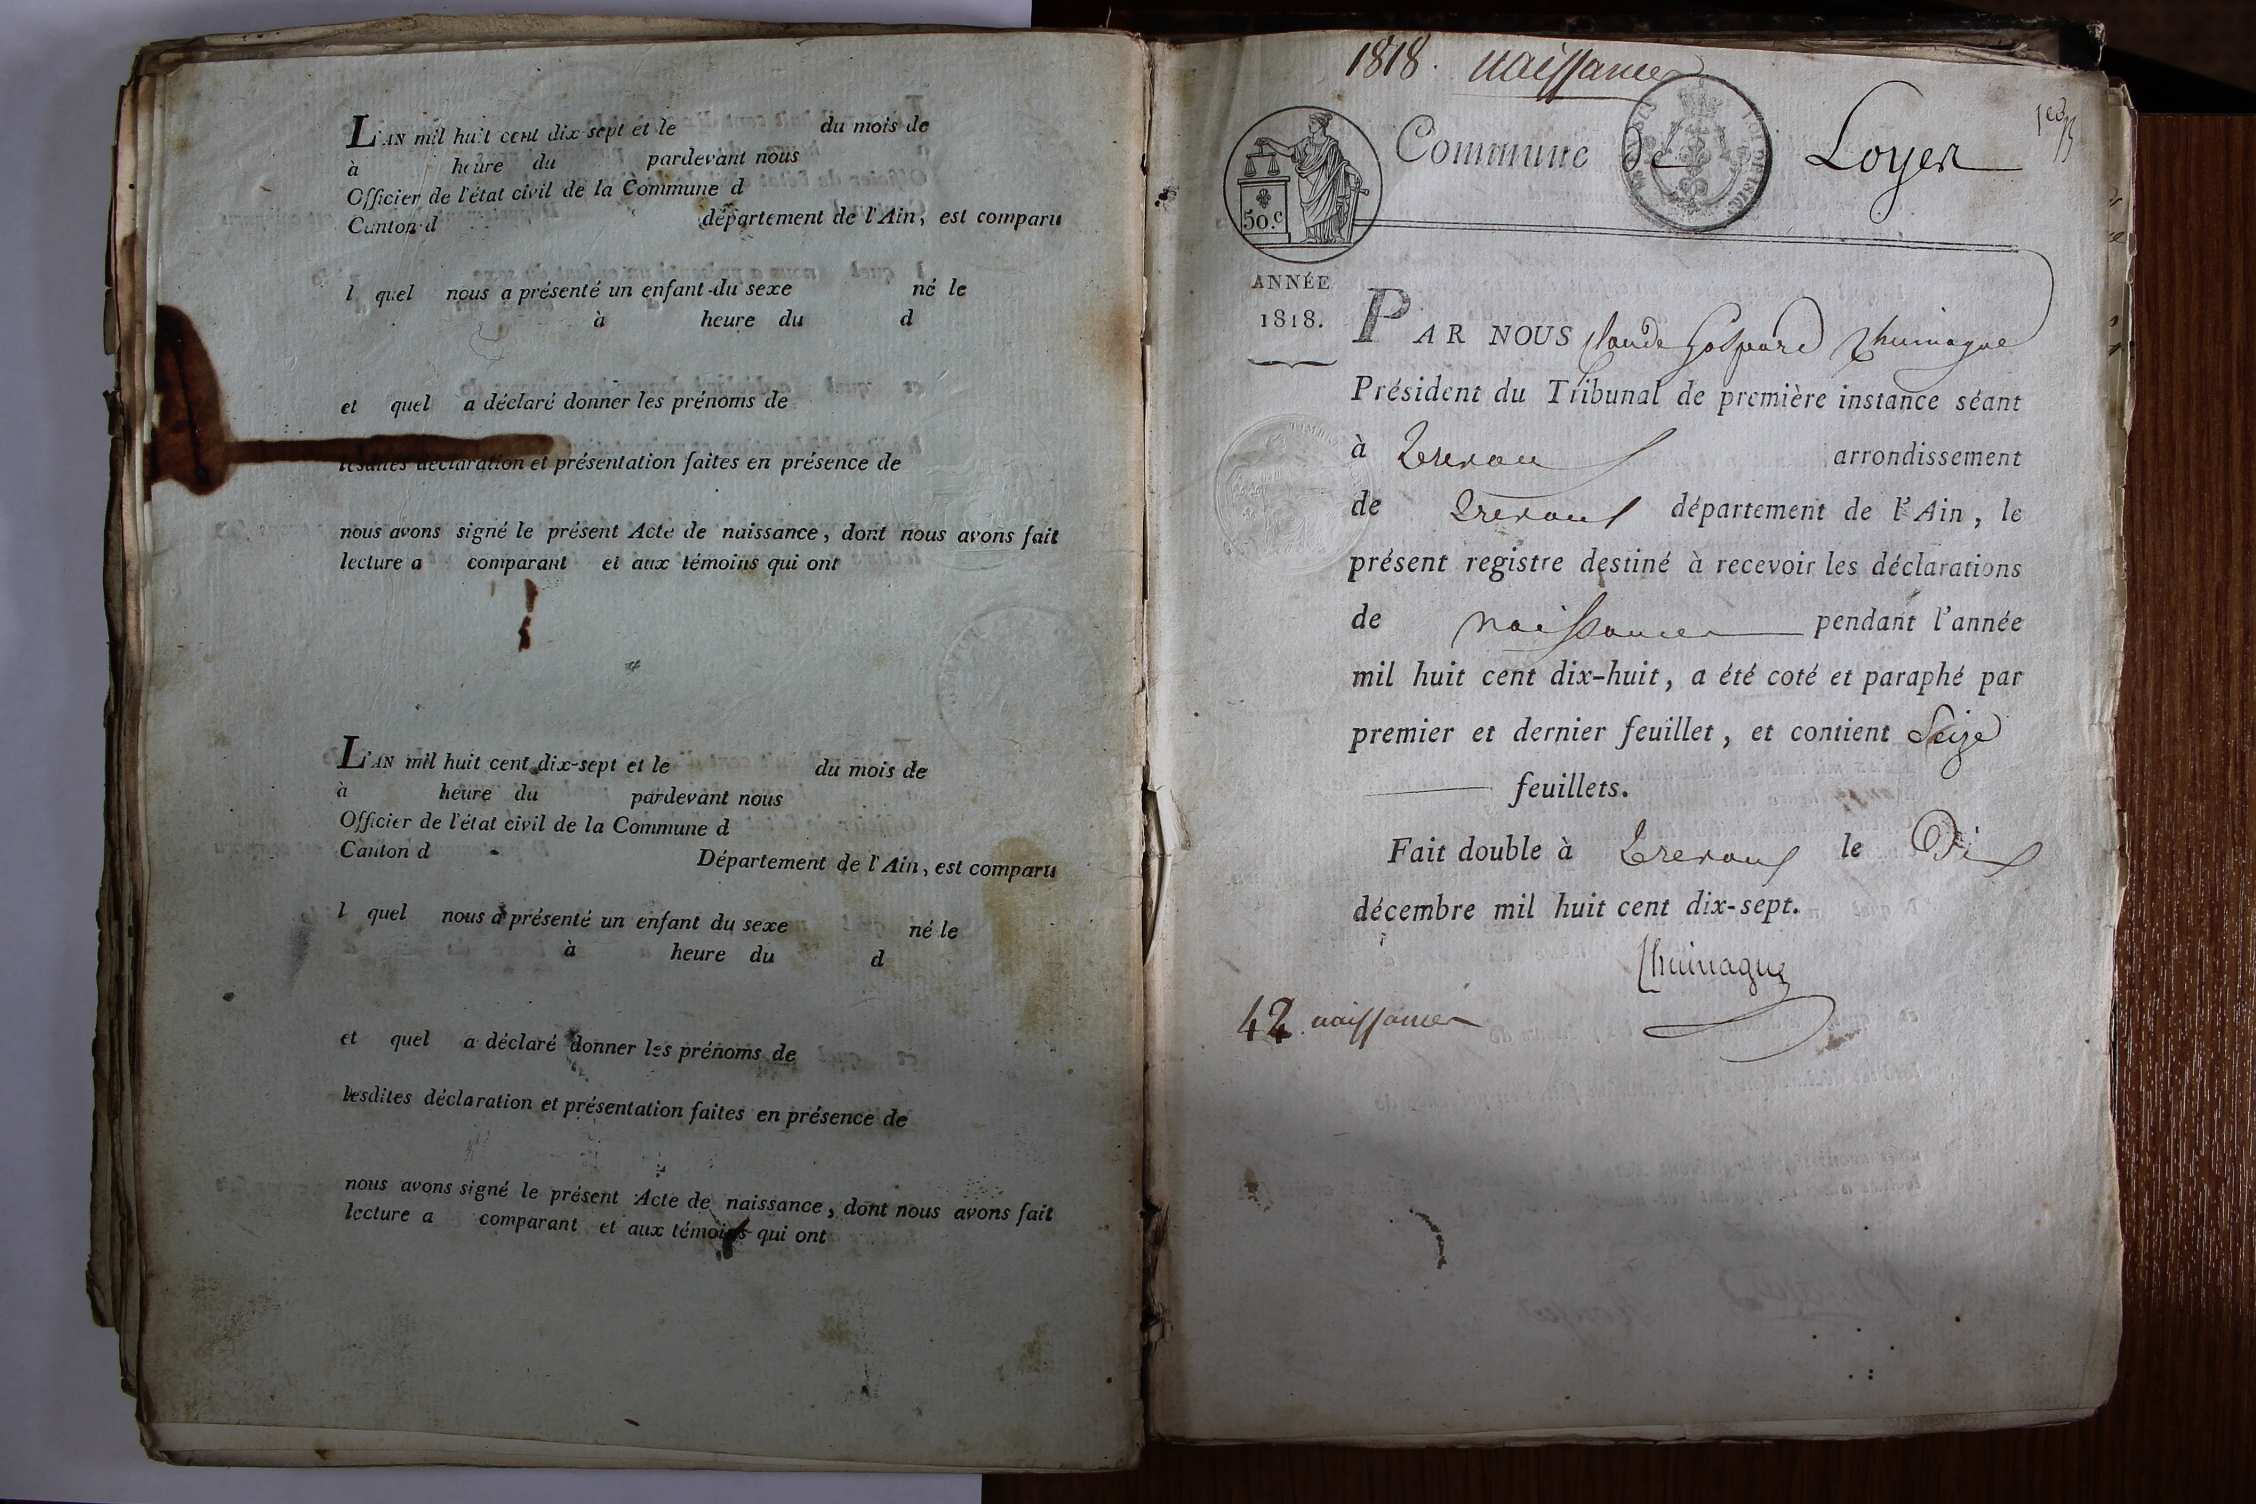 L'AN mil huit cent dix-sept et le du mois de
à heure du pardevant nous
Officier de l'état civil de la Commune d
Canton d département de l'Ain, est comparu
l quel nous a présenté un enfant du sexe né le
à heure du d
et quel a déclaré donner les prénoms de
lesdites déclaration et présentation faites en présence de
nous avons signé le présent Acte de naissance, dont nous avons fait
lecture a comparant et aux témoins qui ont
L'AN mil huit cent dix-sept et le du mois de
à heure du pardevant nous
Officier de l'état civil de la Commune d
Canton d Département de l'Ain, est comparu
l quel nous a présenté un enfant du sexe né le
à heure du d
et quel a déclaré donner les prénoms de
lesdites déclaration et présentation faites en présence de
nous avons signé le présent Acte de naissance, dont nous avons fait
lecture a comparant et aux témoins qui ont
1818. naissances
Commune de Loyer
50.c
ANNÉE
1818.
PAR NOUS Claude Gaspard Thumague
Président du Tribunal de première instance séant
à Trevoux arrondissement
de Trevoux département de l'Ain, le
présent registre destiné à recevoir les déclarations
de naissances pendant l'année
mil huit cent dix-huit, a été coté et paraphé par
premier et dernier feuillet, et contient Seize
feuillets.
Fait double à Trevoux le Dix
décembre mil huit cent dix-sept.
42 naissances